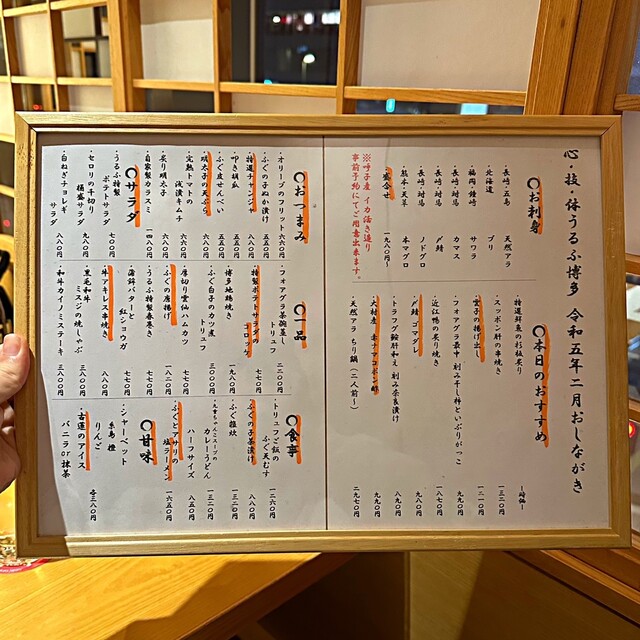 心・技・体うるふ博多 令和五年二月おしながき
○お刺身
・長崎・五島 天然アラ
・北海道 ブリ
・福岡・鐘崎 サワラ
・長崎・対馬 カマス
・長崎・対馬 〆鯖
・長崎・対馬 ノドグロ
・熊本・天草 本マグロ
・盛合せ 一九八〇円〜
※呼子産 イカ活き造り
事前予約にてご用意出来ます。
○本日のおすすめ
・特選鮮魚のお柚炙り ー時価ー
・スッポン肝の串焼き 一三二〇円
・雲子の揚げ出し 一二一〇円
・フォアグラ最中 刻み干し柿といぶりがっこ 九九〇円
・近江鴨の炙り焼き 一八七〇円
・〆鯖 ゴマダレ 九九〇円
・トラフグ鮟肝和え 刻み奈良漬け 九九〇円
・大村産 赤ナマコポン酢 九九〇円
・天然アラ ちり鍋(二人前〜) 二九七〇円
○おつまみ
・オリーブのフリット 六六〇円
・ふぐの子ぬか漬け 五五〇円
・特選チャンジャ 六六〇円
・叩き胡瓜 五五〇円
・ふぐ皮せんべい 五五〇円
・明太子の天ぷら 六六〇円
・完熟トマトの
浅漬キムチ 六六〇円
・炙り明太子 六六〇円
・自家製カラスミ 一四八〇円
○サラダ
・うるふ特製
ポテトサラダ 七〇〇円
・セロリの千切り
桶盛サラダ 九八〇円
・白ねぎチョレギ
サラダ 八八〇円
○一品
・フォアグラ茶碗蒸し
トリュフ 二二〇〇円
・特製ポテトサラダの
コロッケ 七七〇円
・博多地鶏焼き 一九八〇円
・ふぐ白子のカツ煮
トリュフ 三〇〇〇円
・厚切り雲仙ハムカツ 七七〇円
・ふぐの唐揚げ 一八二〇円
・うるふ特製春巻き 七七〇円
・蒲鉾バターと
紅ショウガ 七七〇円
・牛アキレス串焼き 八八〇円
・黒毛和牛
ミスジの焼しゃぶ 三八〇〇円
・和牛カイノミステーキ 三八〇〇円
○食事
・トリュフご飯の
ふぐ天むす 一二六〇円
・ふぐの子茶漬け 八八〇円
・ふぐ雑炊 一三二〇円
カレーうどん 一三二〇円
ハーフサイズ 八五〇円
・ふぐとアサリの
塩ラーメン 一六五〇円
○甘味
・シャーベット
糸島 橙
りんご
・古蓮のアイス
バニラor抹茶
各三八〇円